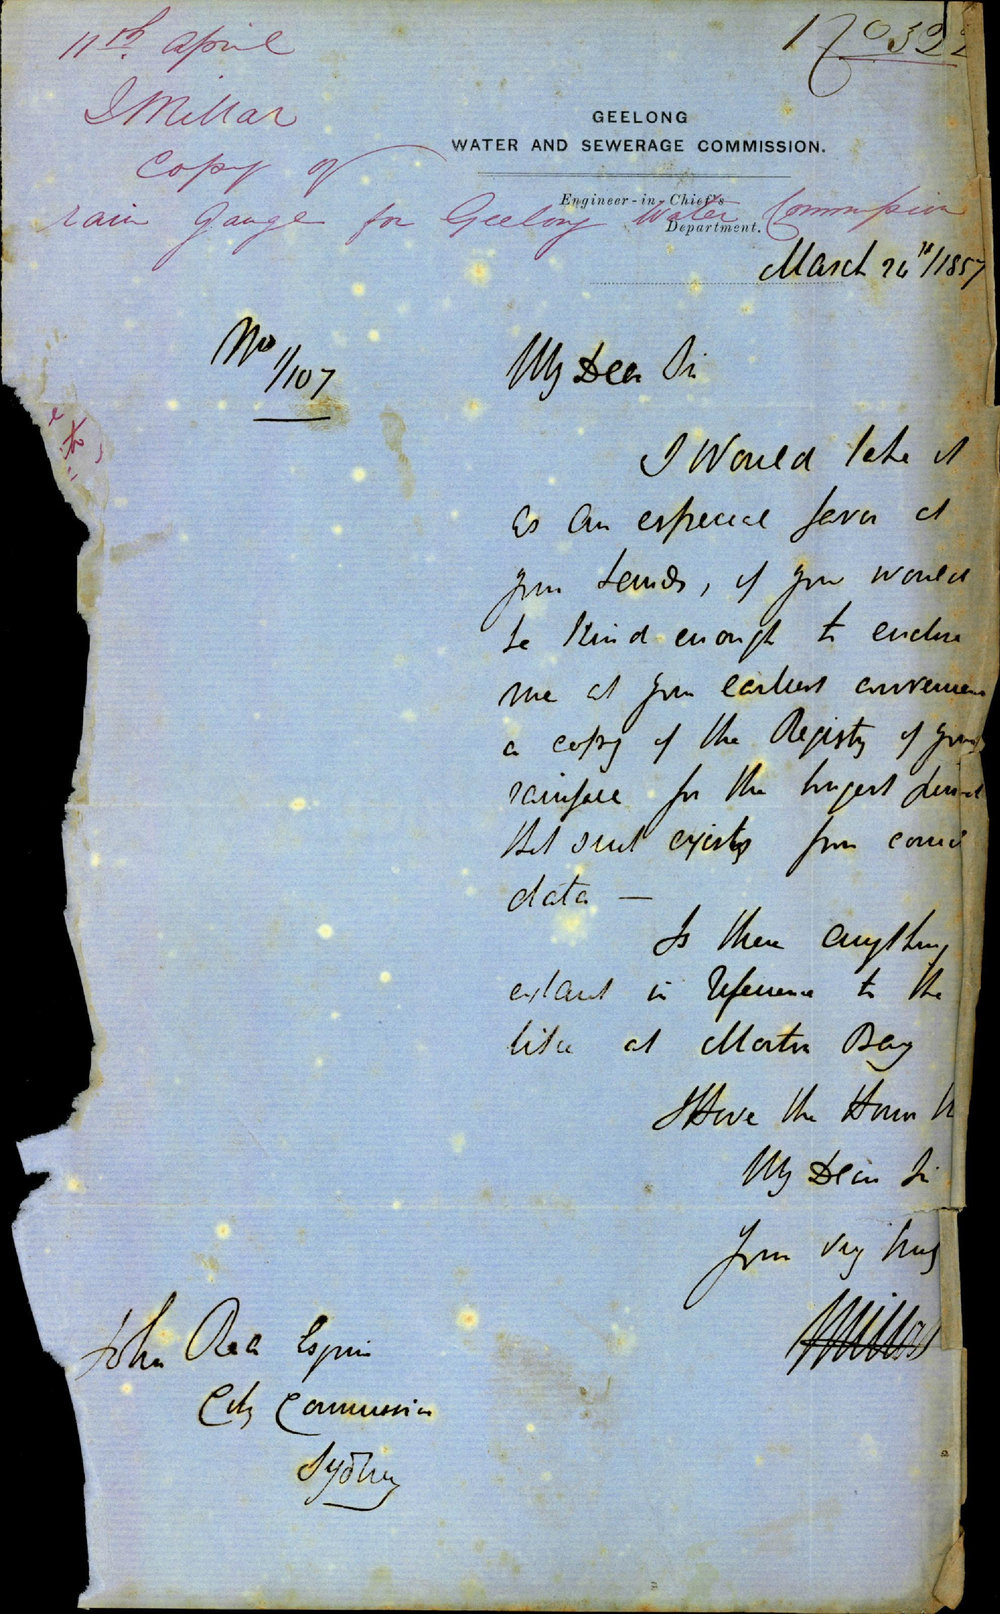 11th april
J Millar
Copy of
rain gauge for Geelong Water Commission
GEELONG
WATER AND SEWERAGE COMMISSION.
Engineer-in-Chief's
Department.
March 26th/1857
No 1/107
My Dear Sir
I Would take it
as an especial favor at
your hands, if you would
be Kind enough to enclose
me at your earliest convenien
a copy of the Registry of your
rainfall for the longest period
that such exists from
data —
Is there anything
extant in reference to the
like at Morton Bay
I Have the Honor to
My Dear Sir
Your very truly
J Millar
John Rae Esquire
City Commissioner
Sydney